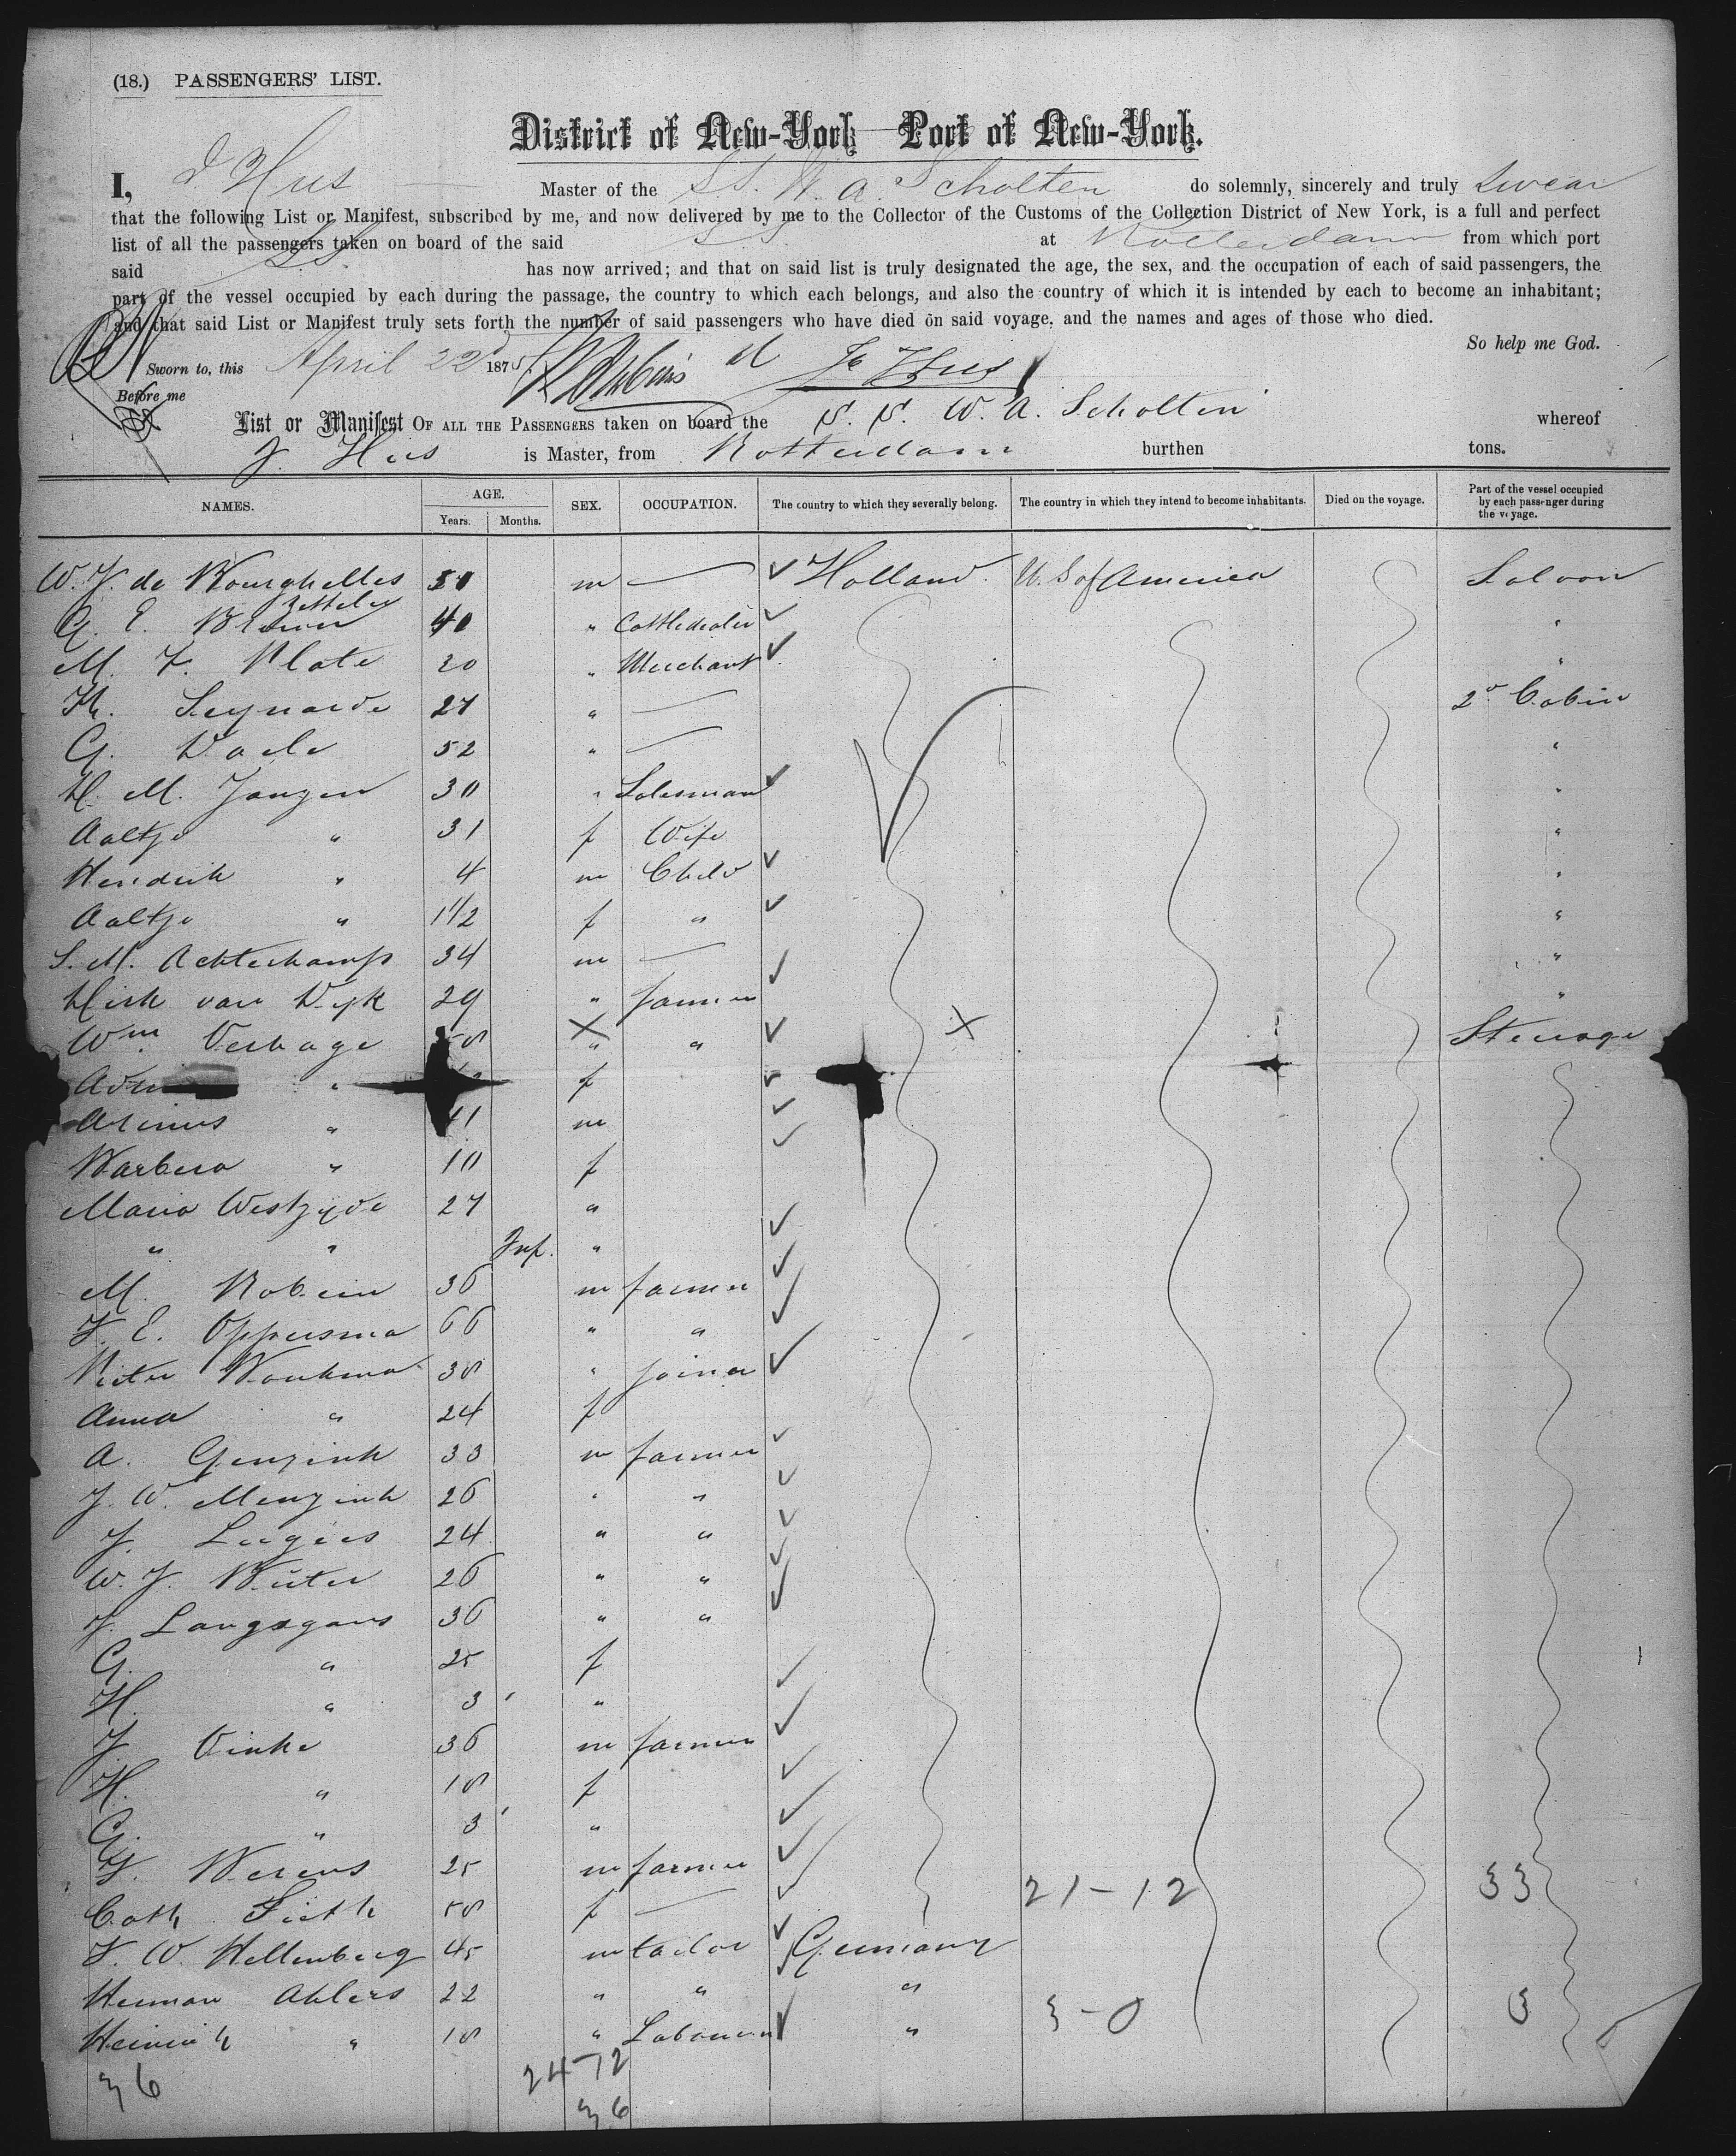 (18.) PASSENGERS' LIST.
District of New-York Port of New-York.
I, J Hus Master of the S.S. W. A. Scholten do solemnly, sincerely and truly swear
that the following List or Manifest, subscribed by me, and now delivered by me to the Collector of the Customs of the Collection District of New York, is a full and perfect
list of all the passengers taken on board of the said S.S. at Rotterdam from which port
said S.S. has now arrived; and that on said list is truly designated the age, the sex, and the occupation of each of said passengers, the
part of the vessel occupied by each during the passage, the country to which each belongs, and also the country of which it is intended by each to become an inhabitant;
and that said List or Manifest truly sets forth the number of said passengers who have died on said voyage, and the names and ages of those who died.
So help me God.
Sworn to, this April 22d 1875 J. Hus
Before me
List or Manifest OF ALL THE PASSENGERS taken on board the S. S. W. A. Scholten whereof
J. Hus is Master, from Rotterdam burthen tons.
NAMES. AGE. Years. Months. SEX. OCCUPATION. The country to which they severally belong. The country in which they intend to become inhabitants. Died on the voyage. Part of the vessel occupied by each passenger during the voyage.
W. J. de m — Holland. U. S of America Saloon
G. E. Brouwer 40 " Cattledealer "
M. J. Plate 20 " Merchant "
H. 27 " — 2d Cabin
G. 52 " — "
H. M. Janzen 30 " Salesman "
Aaltje " 31 f Wife "
Hendrik " 4 m Child "
Aaltje " 1 1/2 f " "
S. M. Achterkamp 34 m — "
Dirk van Dyk 29 " farmer "
Wm. Verhage " " Steerage
" f
Arinus " 11 m
Barbera " 10 f
Maria Westzyde 27 "
" " Inf. "
M. Robein 36 m farmer
J. E. Oppersma 66 " "
Pieter Workma 38 " joiner
Anna " 24 f
A. Genzink 33 m farmer
J. W. Menzink 26 " "
J. Lugies 24 " "
W. J. Buter 26 " "
J. Langsgans 36 " "
G. " 25 f
H. " 3 "
J Vinke 36 m farmer
H. " 18 f
G. " 3 "
J. Berens 25 m farmer 21-12 33
Cath 58 f —
J. W. Hellenberg 45 m tailor Germany
Herman Ahlers 22 " " "
3-0 3
Heinrich " 18 " Labourer "
24-12
36
36